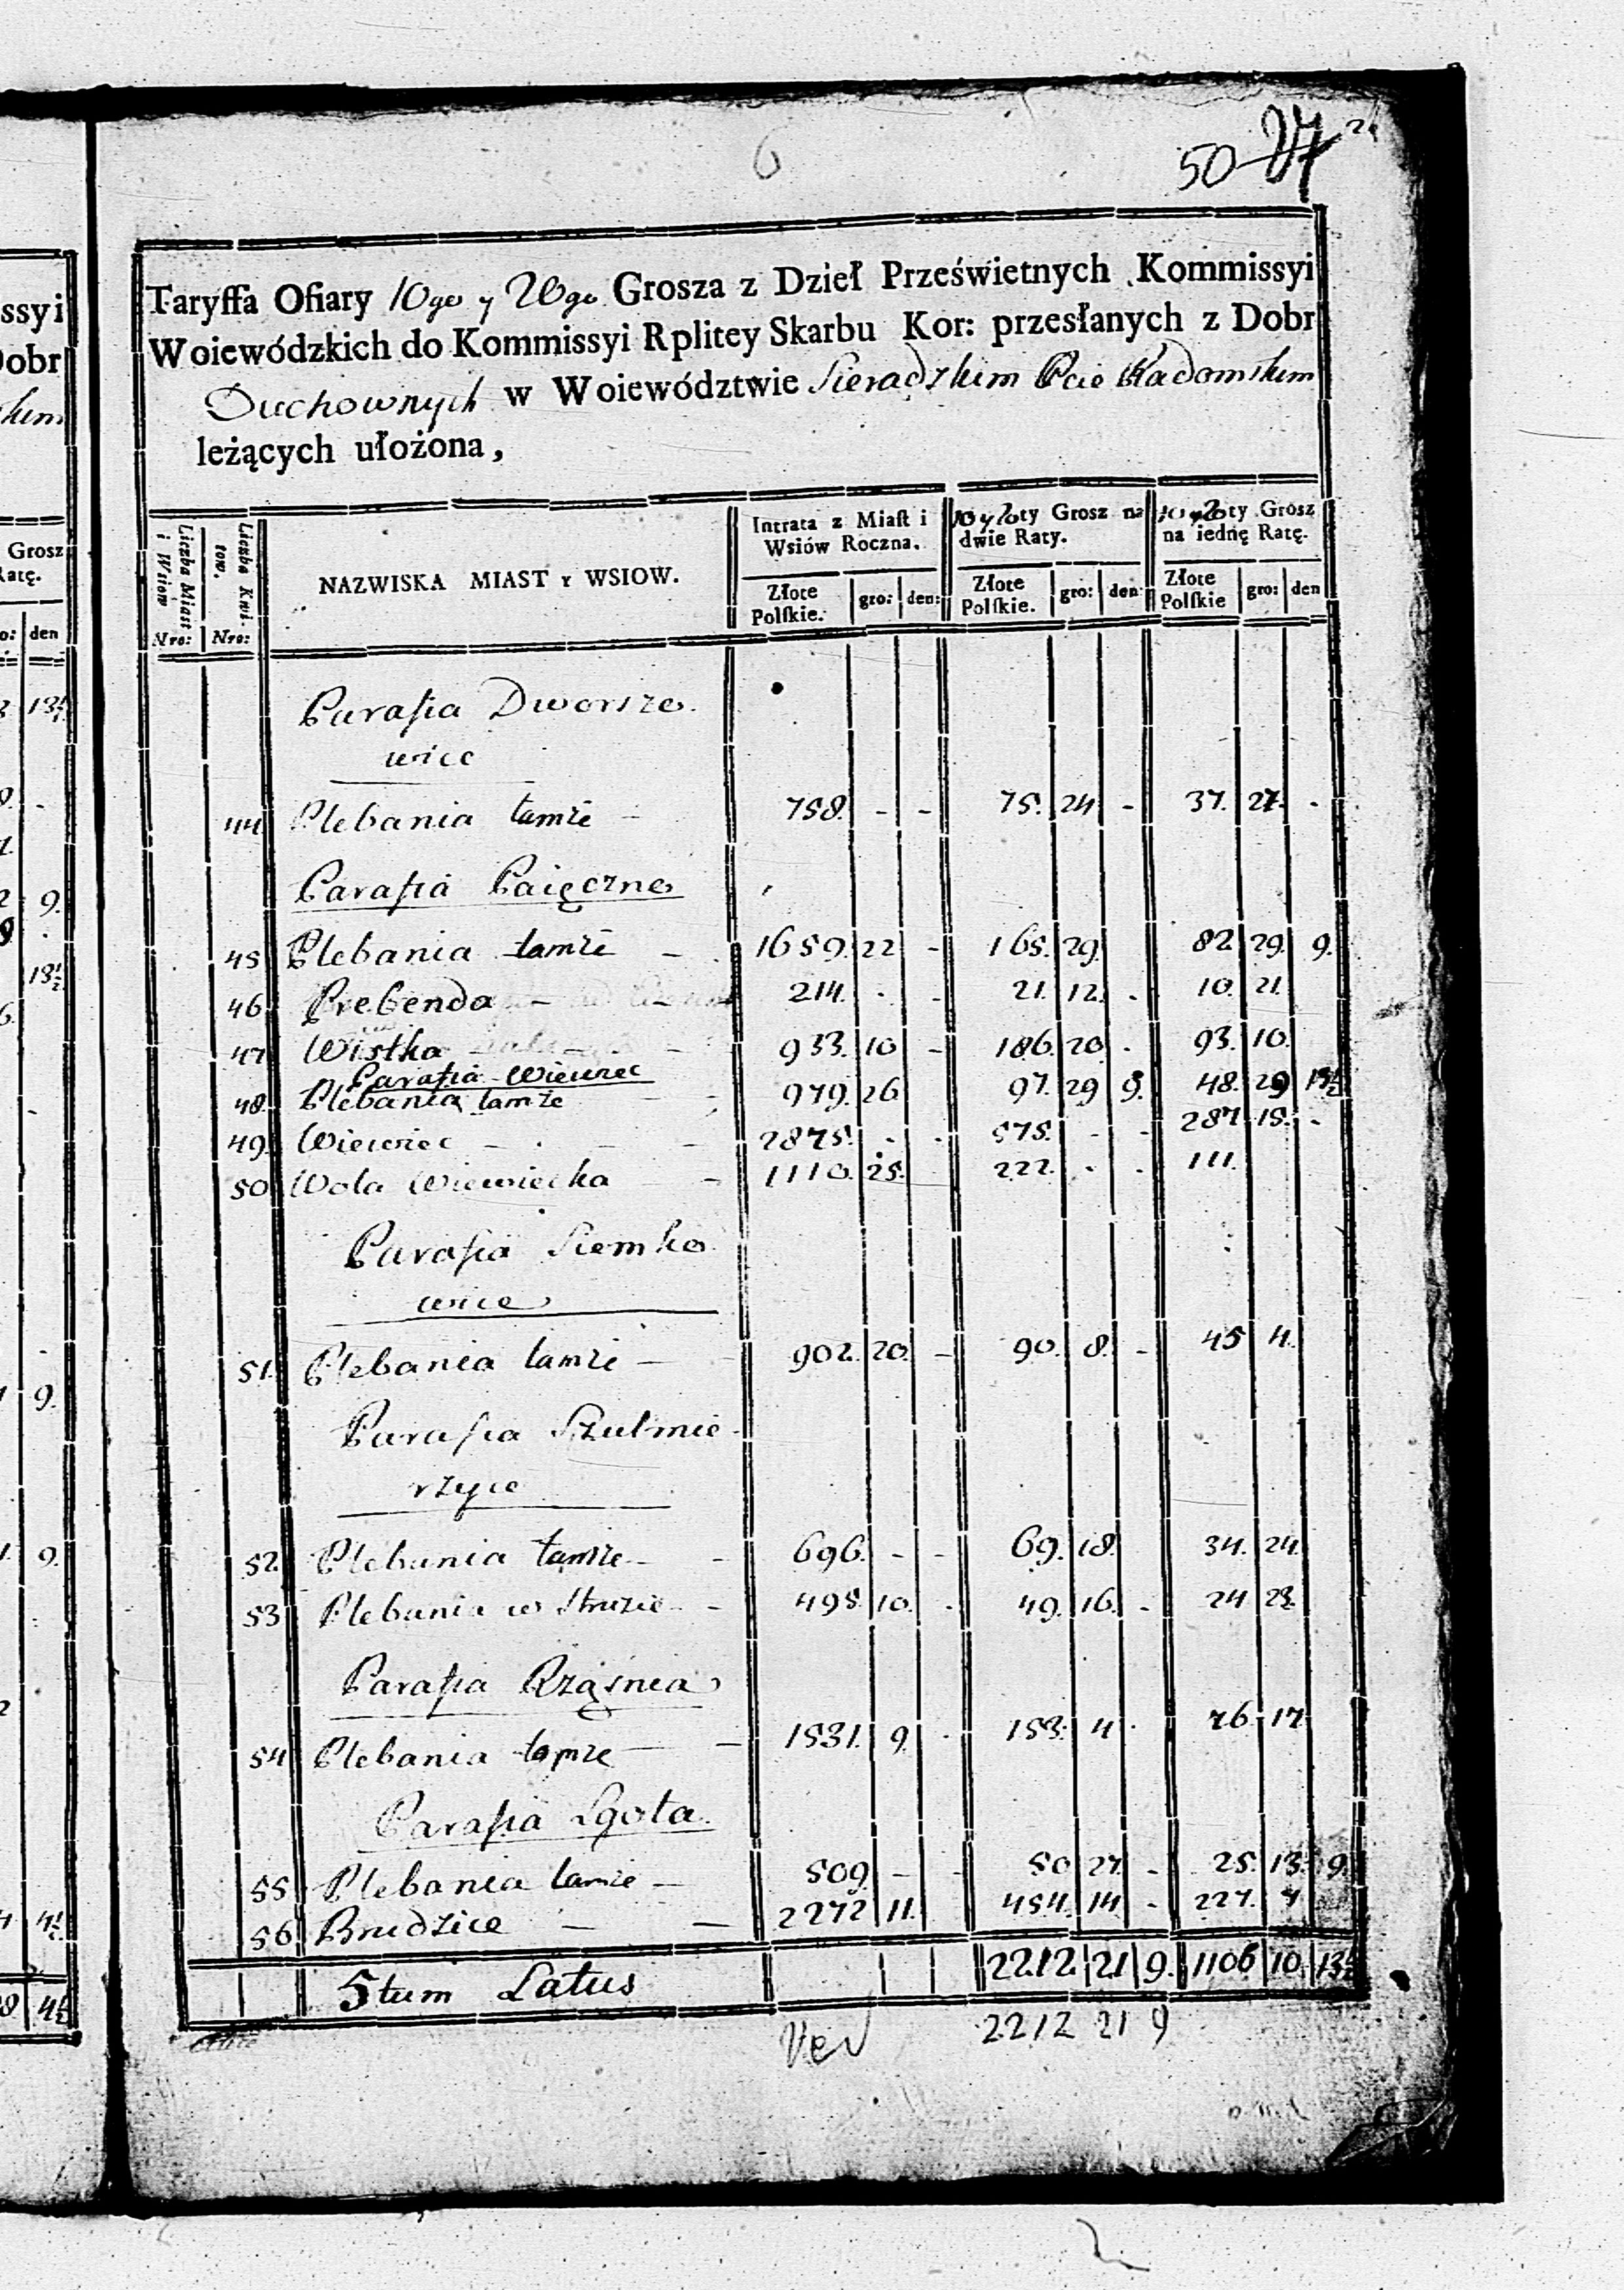 6
50 27
Taryffa Ofiary 10go y 20go Grosza z Dzieł Prześwietnych Kommissyi
Woiewódzkich do Kommissyi Rplitey Skarbu Kor: przesłanych z Dobr
Duchownych w Woiewództwie Sieradzkim Pcie Radomskim
leżących ułożona,
Liczba Miast i Wsiow Nro: Liczba Kwitow. Nro: NAZWISKA MIAST Y WSIOW. Intrata z Miast i Wsiów Roczna. 10 y 20ty Grosz na dwie Raty. 10 y 20ty Grosz na iednę Ratę.
Złote Polskie. gro: den: Złote Polskie. gro: den: Złote Polskie gro: den
Parafia Dworsze
wice
44 Plebania tamże - 758. - - 75. 24 - 37. 27. -
Parafia Paięczno
45 Plebania tamże - 1659. 22 - 165. 29. 82 29. 9.
46 Prebenda - - 214. . . 21. 12. . 10. 21.
47 Wistka - - 933. 10 - 186. 20. . 93. 10.
Parafia Wiewiec
48. Plebania tamże - - 979. 26 97. 29 9. 48. 29 13½
49. Wiewiec - . - - 2875. . . 575. - - 287. 15. -
50 Wola Wiewiecka - - 1110. 25. 222. . . 111.
Parafia Siemko
wice
51. Plebania tamże - 902. 20. - 90. 8. - 45 4.
Parafia Szulmie
rzyce
52 Plebania tamże - - 696. - - 69. 18. 34. 24.
53 Plebania w Struzie - 495. 10. . 49. 16. - 24 23.
Parafia Rząśnia
54 Plebania tamże - - 1531. 9. . 153. 4. 76. 17
Parafia Lgota
55 Plebania tamże - 509. - - 50 27 - 25. 13. 9.
56 Brudzice - - 2272 11. 454. 14. - 227. 7
5tum Latus 2212. 21 9. 1106 10. 13½
Ver 2212 21 9